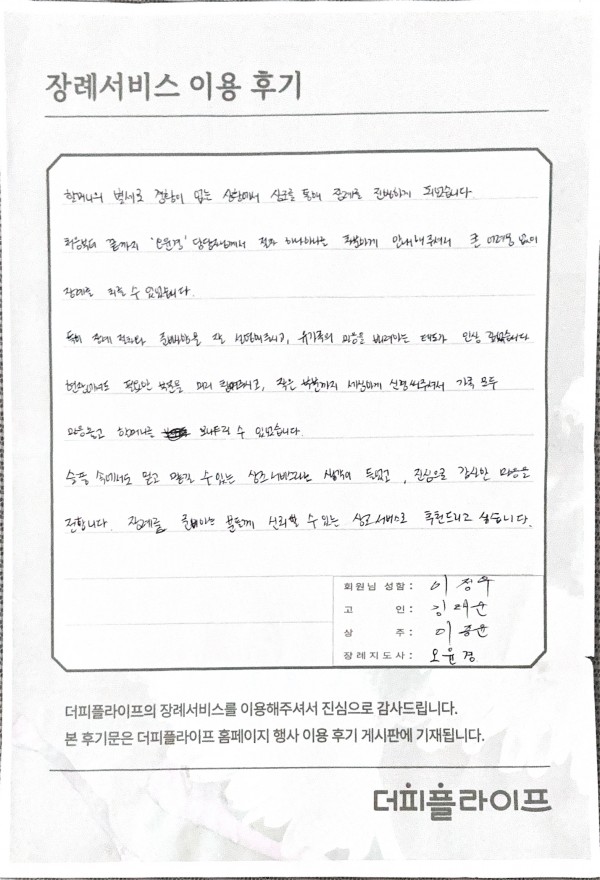 장례서비스 이용 후기
할머니의 별세로 경황이 없는 상황에서 상조를 통해 장례를 진행하게 되었습니다.
처음부터 끝까지 '오윤경' 담당자님께서 절차 하나하나를 차분하게 안내해주셔서 큰 어려움 없이
장례를 치를 수 있었습니다.
특히 장례 절차와 준비사항을 잘 설명해주시고, 유가족의 마음을 배려하는 태도가 인상 깊었습니다
현장에서도 필요한 부분을 미리 챙겨주시고, 작은 부분까지 세심하게 신경써주셔서 가족 모두
마음놓고 할머니를 보내드릴 수 있었습니다.
슬픔 속에서도 믿고 맡길 수 있는 상조서비스라는 생각이 들었고, 진심으로 감사한 마음을
전합니다. 장례를 준비하는 분들께 신뢰할 수 있는 상조서비스로 추천드리고 싶습니다.
회원님 성함 : 이정우
고 인 : 김태순
상 주 : 이종윤
장례지도사 : 오윤경
더피플라이프의 장례서비스를 이용해주셔서 진심으로 감사드립니다.
본 후기문은 더피플라이프 홈페이지 행사 이용 후기 게시판에 기재됩니다.
더피플라이프